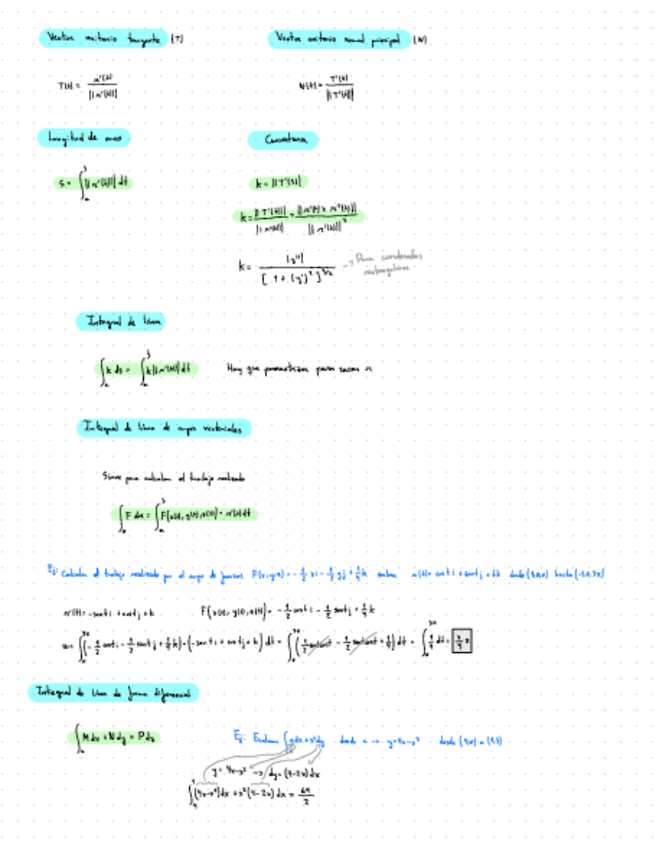 Vector unitario tangente (T)
Vector unitario normal principal (N)
T(t) = r'(t) / ||r'(t)||
N(t) = T'(t) / ||T'(t)||
Longitud de arco
Curvatura
s = ∫_a^b ||r'(t)|| dt
k = ||T'(s)||
k = ||T'(t)|| / ||r'(t)|| = ||r'(t) x r''(t)|| / ||r'(t)||³
k = |y''| / [1 + (y')²]^3/2 → Para coordenadas
rectangulares
Integral de línea
∫ k ds = ∫_a^b k ||r'(t)|| dt Hay que parametrizar para sacar r
Integral de línea de campos vectoriales
Sirve para calcular el trabajo realizado
∫ F dr = ∫_a^b F(x(t), y(t), z(t)) · r'(t) dt
Ej: Calcular el trabajo realizado por el campo de fuerzas F(x,y,z) = -1/2 xi - 1/2 yj + 1/4 k sobre r(t) = cost i + sent j + tk desde (1,0,0) hasta (-1,0,3π)
r'(t) = -sent i + cost j + k F(x(t), y(t), z(t)) = -1/2 cost i - 1/2 sent j + 1/4 k
Integral de línea de forma diferencial
∫ M dx + N dy + P dz
Ej: Evaluar ∫ y dx + x² dy donde c → y = 4x - x² desde (4,0) a (1,3)
y = 4x - x² → dy = (4 - 2x) dx
∫_4^1 (4x - x²) dx + x² (4 - 2x) dx = 69/2